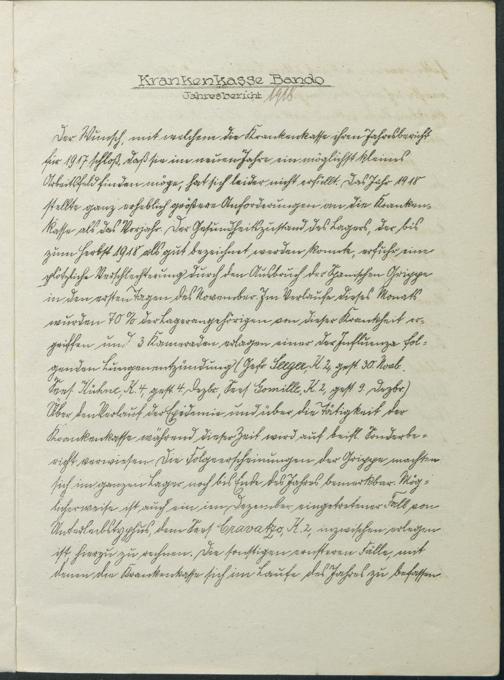 Krankenkasse Bando
Jahresbericht 1918
Der Wunsch, mit welchem die Krankenkasse ihren Jahresbericht
für 1917 schloß, daß sie im neuen Jahre ein möglichst kleines
Arbeitsfeld finden möge, hat sich leider nicht erfüllt. Das Jahr 1918
stellte ganz erheblich größere Anforderungen an die Kranken-
kasse als das Vorjahr. Der Gesundheitszustand des Lagers, der bis
zum Herbst 1918 als gut bezeichnet werden konnte, erfuhr eine
plötzliche Verschlechterung durch den Ausbruch der Spanischen Grippe
in den ersten Tagen des November. Im Verlaufe dieses Monats
wurden 70% der Lagerangehörigen von dieser Krankheit er-
griffen, und 3 Kameraden erlagen einer der Influenza fol-
genden Lungenentzündung (Gefr. Seeger, K. 2, gest. 30. Novb.
Sees. Kühne, K. 4, gest. 4. Dezbr., Sees. Gomille, K. 2, gest. 9. Dezbr.)
Über den Verlauf der Epidemie und über die Tätigkeit der
Krankenkasse während dieser Zeit wird auf beifl. Sonderbe-
richt verwiesen. Die Folgeerscheinungen der Grippe machten
sich im ganzen Lager noch bis Ende des Jahres bemerkbar. Mög-
licherweise ist auch ein im Dezember eingetretener Fall von
Unterleibstyphus, dem Sees. Cravatzo, K. 2, inzwischen erlegen
ist, hierzu zu rechnen. Die sonstigen ernsteren Fälle, mit
denen die Krankenkasse sich im Laufe des Jahres zu befassen